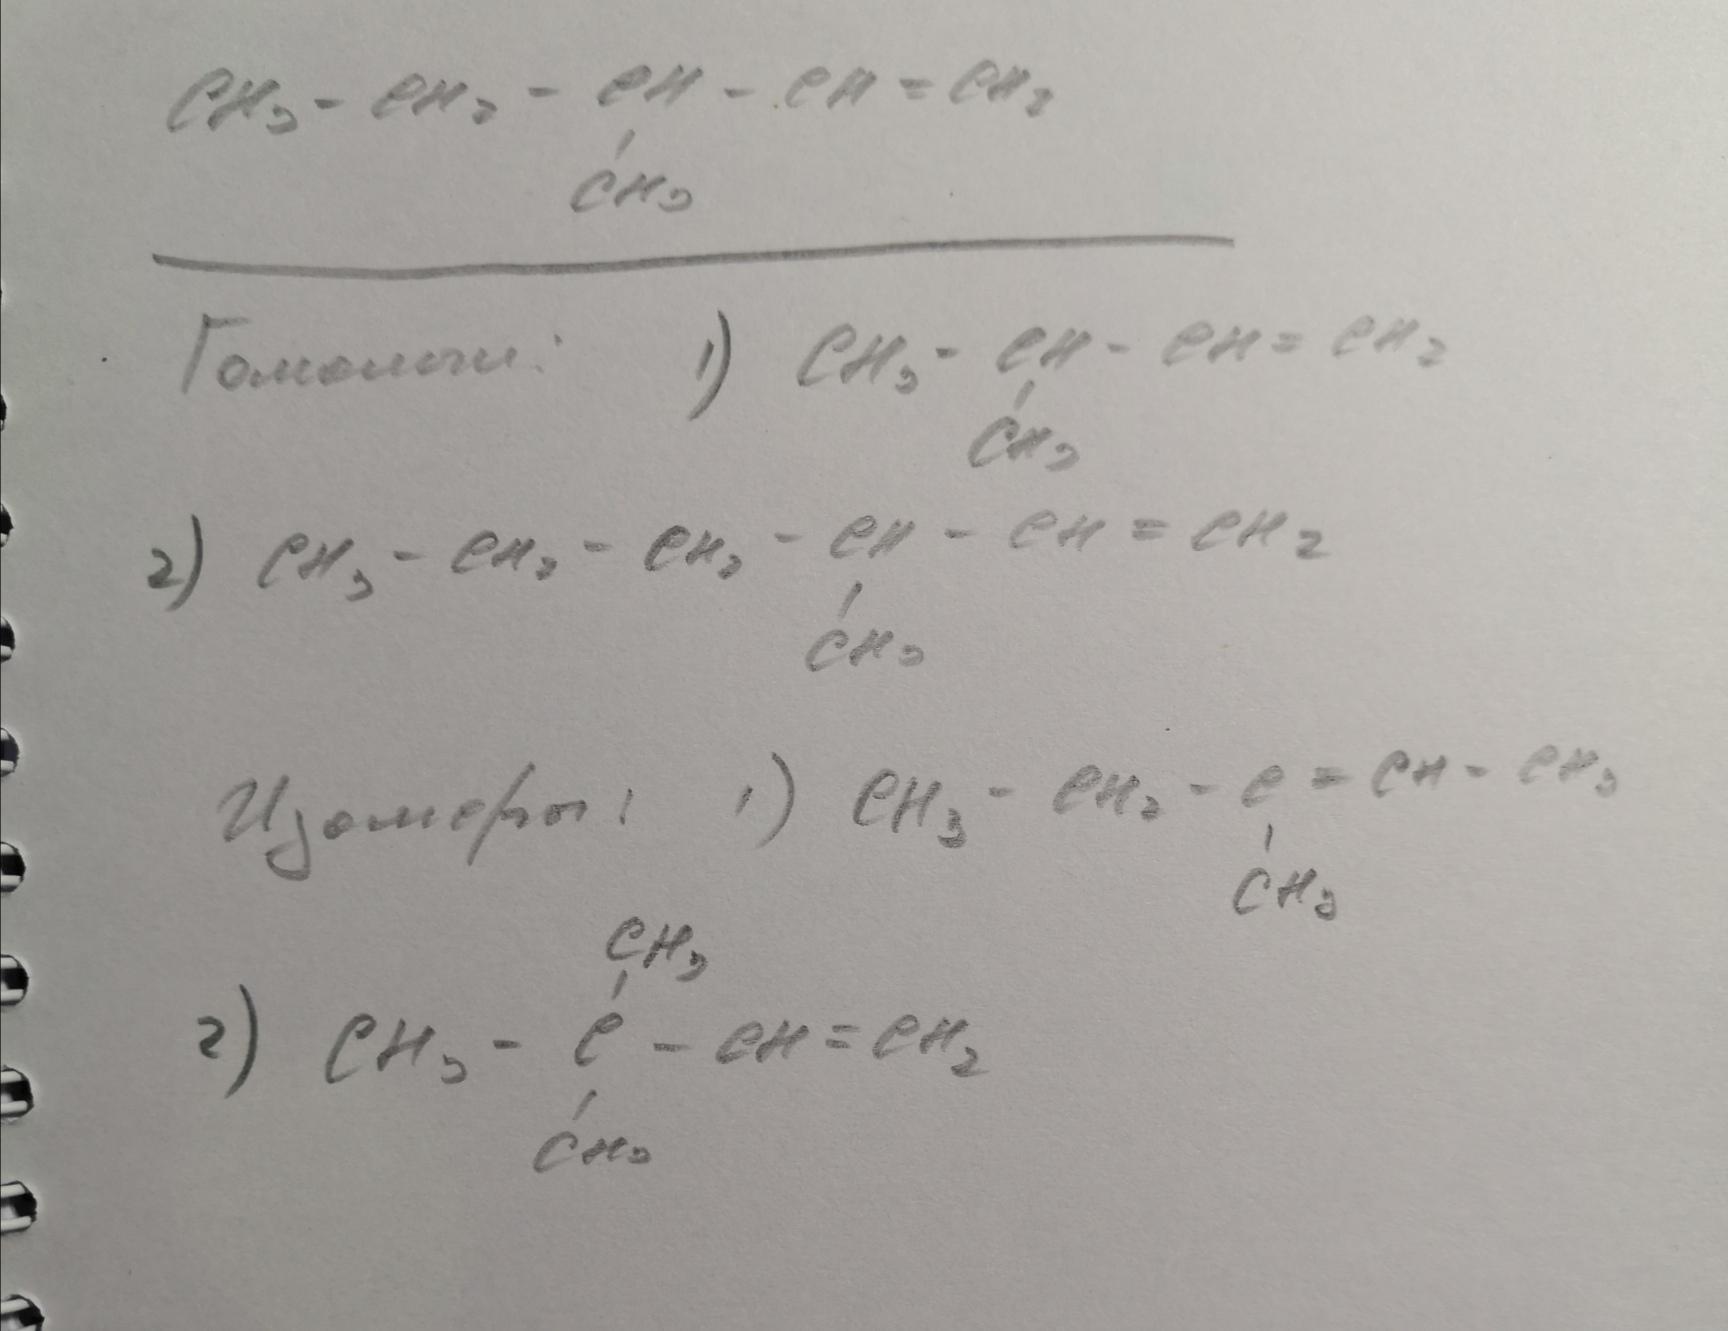 CH₃ - CH₂ - CH - CH = CH₂
CH₃
Гомологи: 1) CH₃ - CH - CH = CH₂
CH₃
2) CH₃ - CH₂ - CH₂ - CH - CH = CH₂
CH₃
Изомеры: 1) CH₃ - CH₂ - C = CH - CH₃
CH₃
CH₃
2) CH₃ - C - CH = CH₂
CH₃